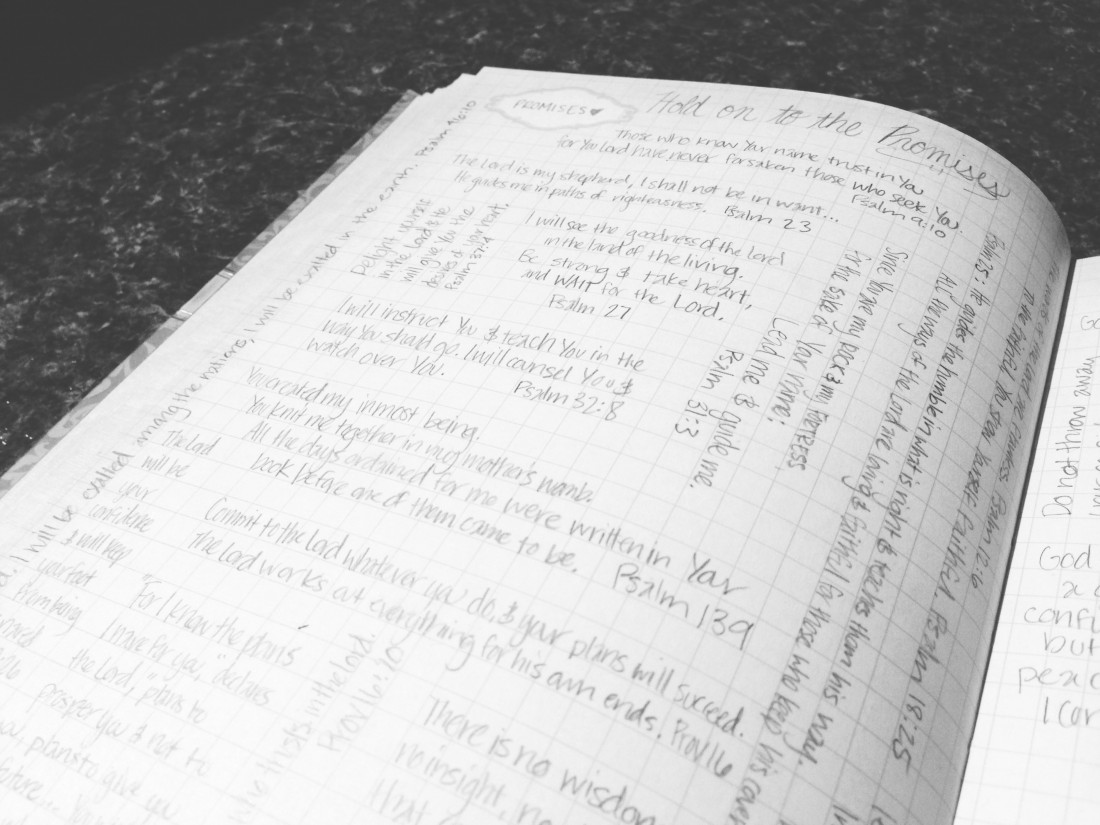 PROMISES
Hold on to the Promises
Those who know Your name trust in You
for You Lord have never forsaken those who seek You.
Psalm 9:10
The Lord is my shepherd, I shall not be in want...
He guides me in paths of righteousness. Psalm 23
Delight yourself
in the Lord & He
will give You the
desires of your heart.
Psalm 37:4
I will see the goodness of the Lord
in the land of the living.
Be strong & take heart,
and WAIT for the Lord.
Psalm 27
I will instruct You & teach You in the
way You should go. I will counsel You &
watch over You.
Psalm 32:8
Since You are my rock & my fortress,
for the sake of Your name,
Lead me & guide me.
Psalm 31:3
You created my inmost being.
You knit me together in my mother's womb.
All the days ordained for me were written in Your
book before one of them came to be. Psalm 139
The Lord
will be
your
confidence
& will keep
your foot
from being
Commit to the Lord whatever you do, & your plans will succeed.
The Lord works out everything for his own ends. Prov 16
"For I know the plans
I have for you," declares
the Lord, "plans to
prosper you & not to
plans to give you
future...
trusts in the Lord.
Prov 16:20
There is no wisdom
no insight,
that
I will be exalted among the nations, I will be exalted in the earth. Psalm 46:10
Psalm 25: He guides the humble in what is right & teaches them his way.
All the ways of the Lord are loving & faithful for those who keep his
To the faithful You show Yourself faithful. Psalm 18:25
Psalm 12:6
Do not
God
but
1 Cor